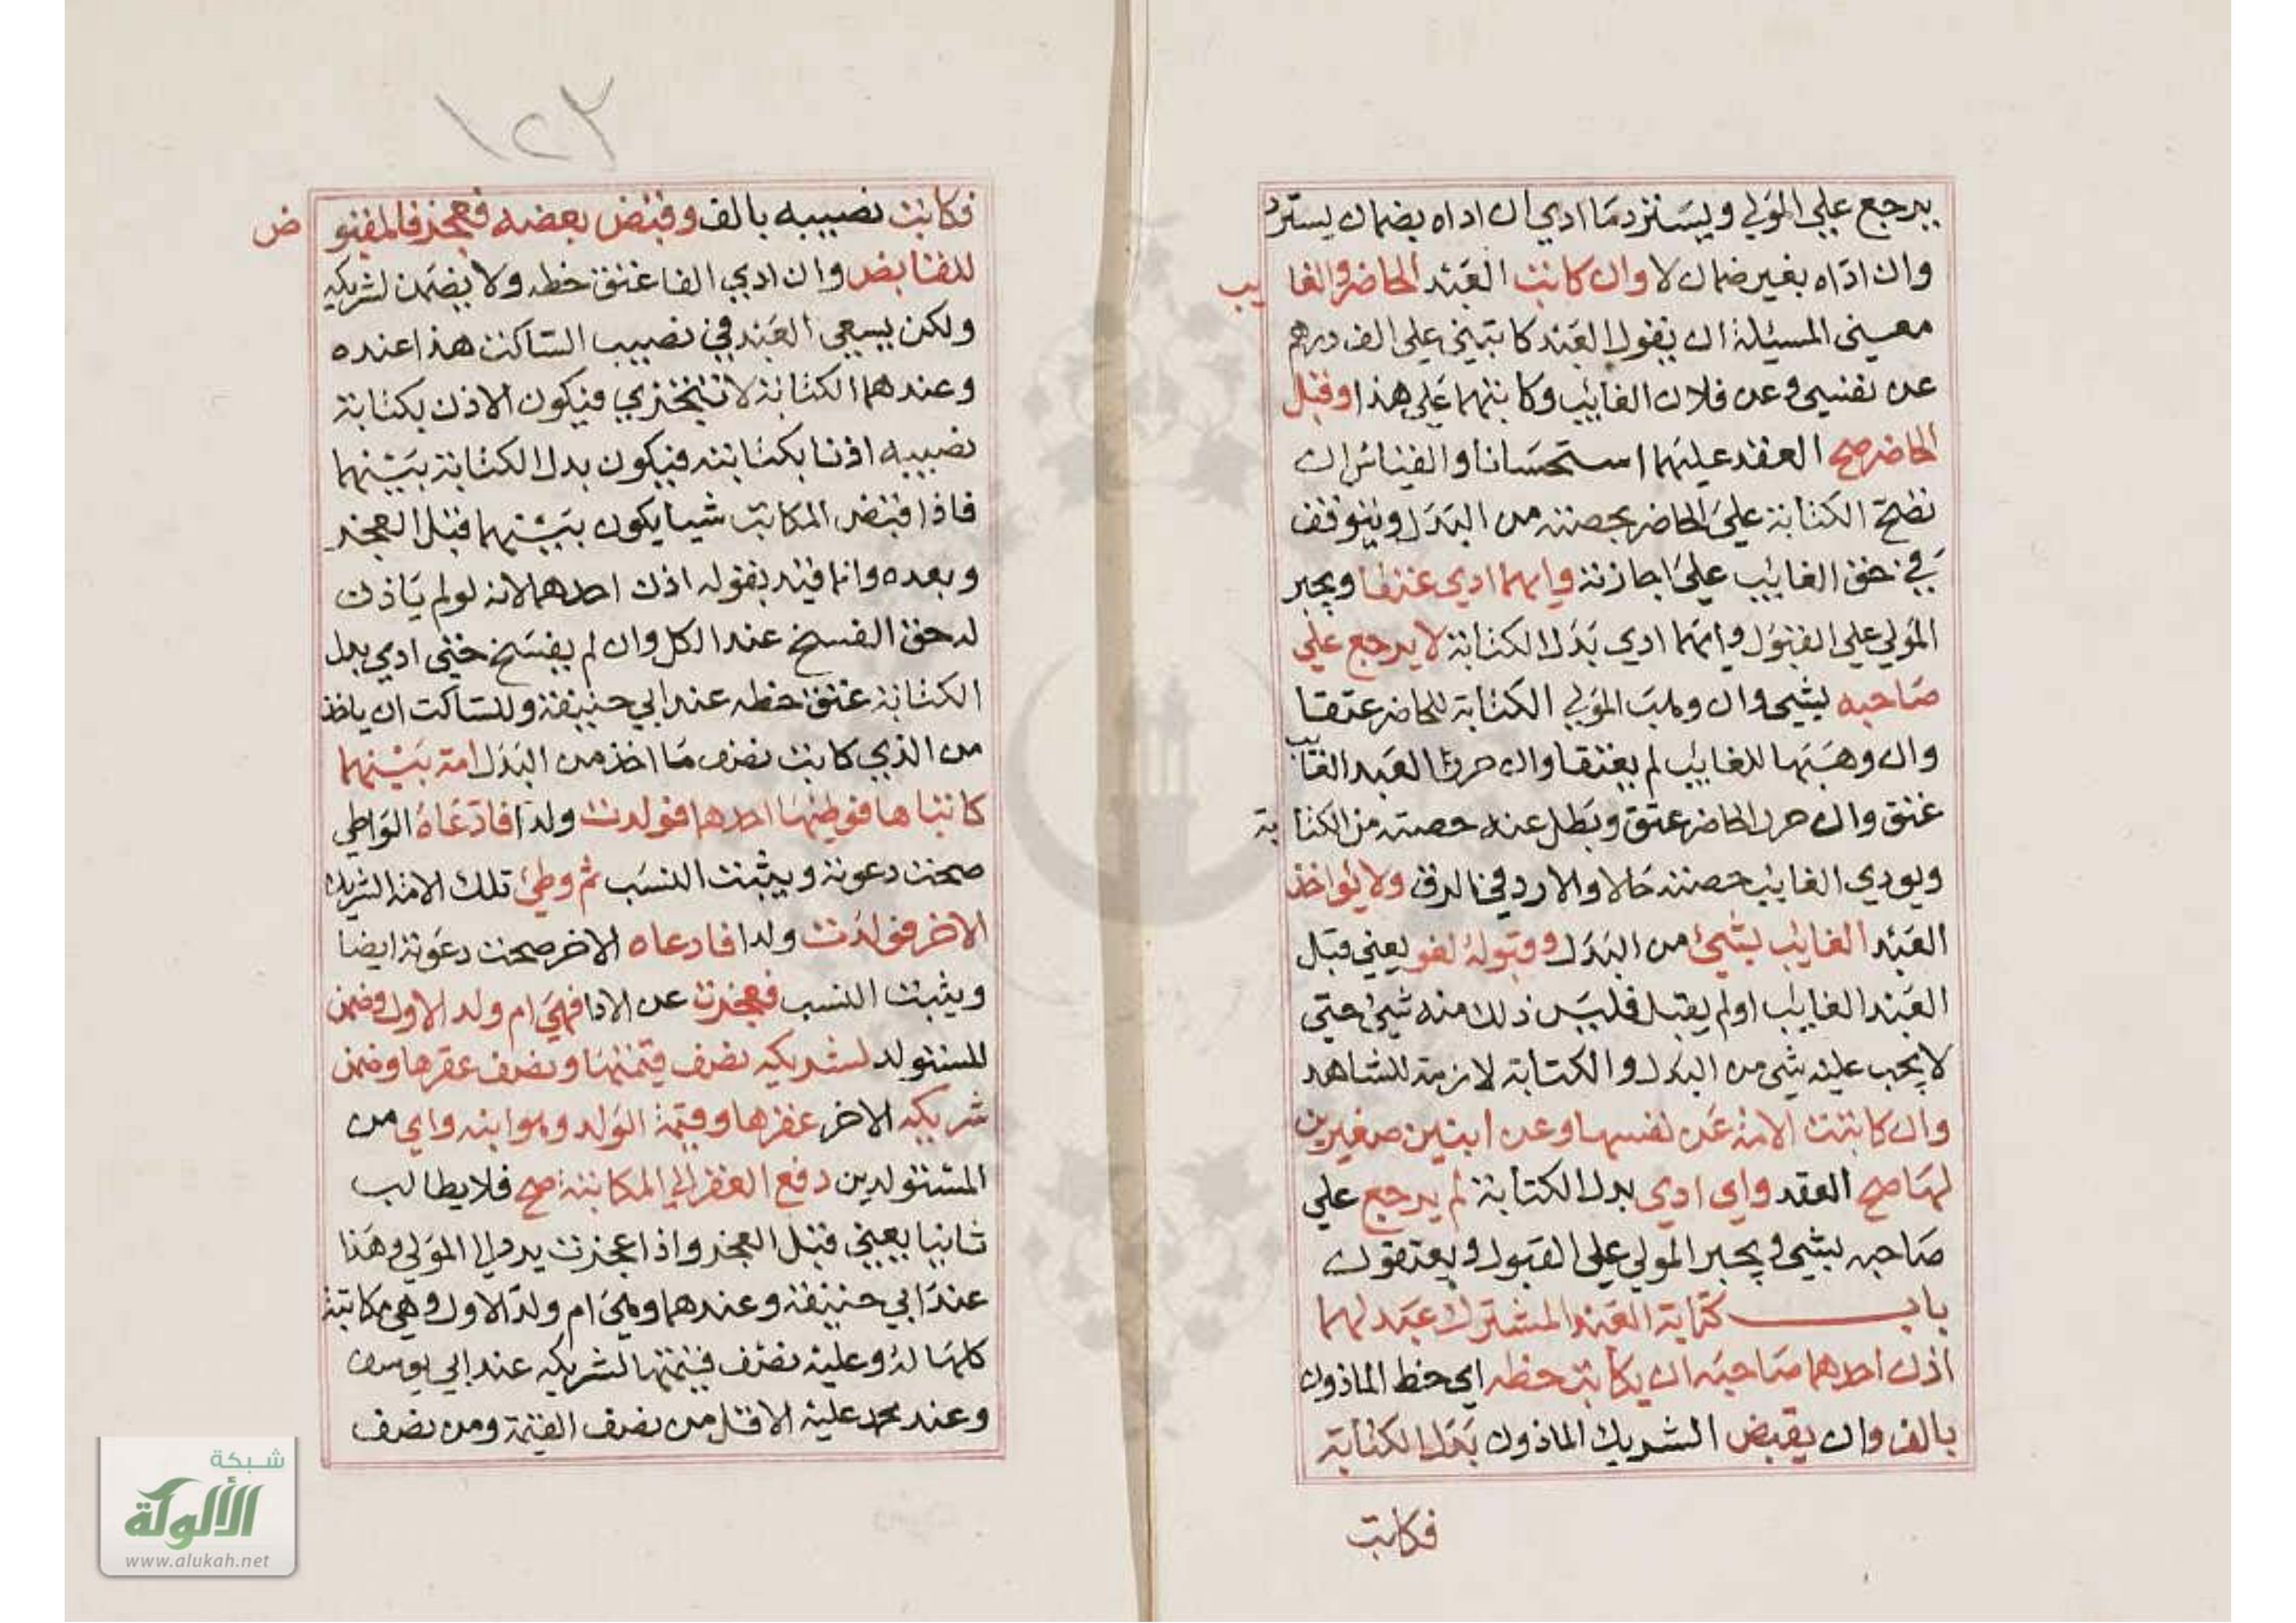 يرجع علي المولي ويسترد ما ادي ان اداه بضمان يسترد
وان اداه بغير ضمان لا وان كاتبت العبد الحاضر والغايب
معني المسئلة ان يقول العبد كاتبني علي الف درهم
عن نفسي وعن فلان الغائب وكاتبهما علي هذا وقبل
الحاضر صح العقد عليهما استحسانا والقياس ان
تصح الكتابة علي الحاضر بحصته من البدل ويتوقف
في حق الغائب علي اجازته وايهما ادي عتقا ويجبر
المولي علي القبول وايهما ادي بدل الكتابة لا يرجع علي
صاحبه بشي وان وهب المولي الكتابة للحاضر عتقا
وان وهبها للغائب لم يعتقا وان حرر العبد الغايب
عتق وان حرر الحاضر عتق وبطل عنه حصته من الكتابة
ويودي الغايب حصته حالا والا رد في الرق ولا يواخذ
العبد الغايب بشيئ من البدل وقبوله لغو يعني قبل
العبد الغايب اولم يقبل فليس ذلك منه شيئ حتي
لا يجب عليه شي من البدل والكتابة لازمة للشاهد
وان كاتبت الامة عن نفسها وعن ابنين صغيرين
لها صح العقد واي ادي بدل الكتابة لم يرجع علي
صاحبه بشي ويجبر المولي علي القبول ويعتقون
باب كتابة العبد المشترك عبد لهما
اذن احدهما صاحبه ان يكاتب حظه اي حظ الماذون
بالف وان يقبض الشريك الماذون بدل الكتابة
فكاتب
١٢٣
فكاتبت نصيبه بالف وقبض بعضه فعجز فالمقبوض
للقابض وان ادي الفا عتق حظه ولا يضمن لشريكه
ولكن يسعي العبد في نصيب الساكت هذا عنده
وعندهما الكتابة لا تتجزي فيكون الاذن بكتابة
نصيبه اذنا بكتابته فيكون بدل الكتابة بينهما
فاذا قبض المكاتب شيا يكون بينهما قبل العجز
وبعده وانما قيد بقوله اذن احدهما لانه لو لم ياذن
له حق الفسخ عند الكل وان لم يفسخ حتي ادي بدل
الكتابة عتق حظه عند ابي حنيفة وللساكت ان ياخذ
من الذي كاتبت نصف ما اخذ من البدل امة بينهما
كاتباها فوطئها احدهما فولدت ولدا فادعاه الواطي
صحت دعوته ويثبت النسب ثم وطئ تلك الامة الشريك
الاخر فولدت ولدا فادعاه الاخر صحت دعوته ايضا
ويثبت النسب فعجزت عن الادا فهي ام ولد الاول وضمن
المستولد لشريكه نصف قيمتها ونصف عقرها وضمن
شريكه الاخر عقرها وقيمة الولد وهو ابنه واي من
المستولدين دفع العقر الي المكاتبة صح فلا يطالب
ثانيا يعني قبل العجز واذا عجزت يرد الي المولي وهذا
عند ابي حنيفة وعندهما وهي ام ولد الاول وهي مكاتبة
كلها له وعليه نصف قيمتها لشريكه عند ابي يوسف
وعند محمد عليه الاقل من نصف القيمة ومن نصف
شبكة
الألوكة
www.alukah.net